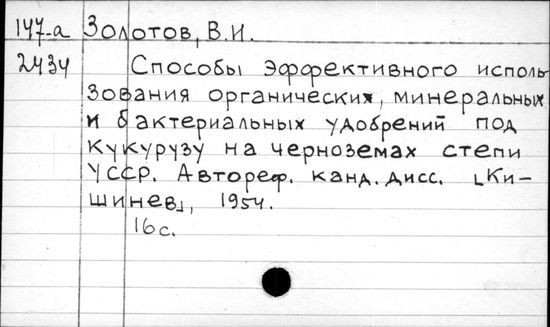 147-а Золотов, В.И.
2434 Способы эффективного исполь-
зования органических, минеральных
и бактериальных удобрений под
кукурузу на черноземах степи
УССР. Автореф. канд. дисс. [Ки-
шинев], 1954.
16с.